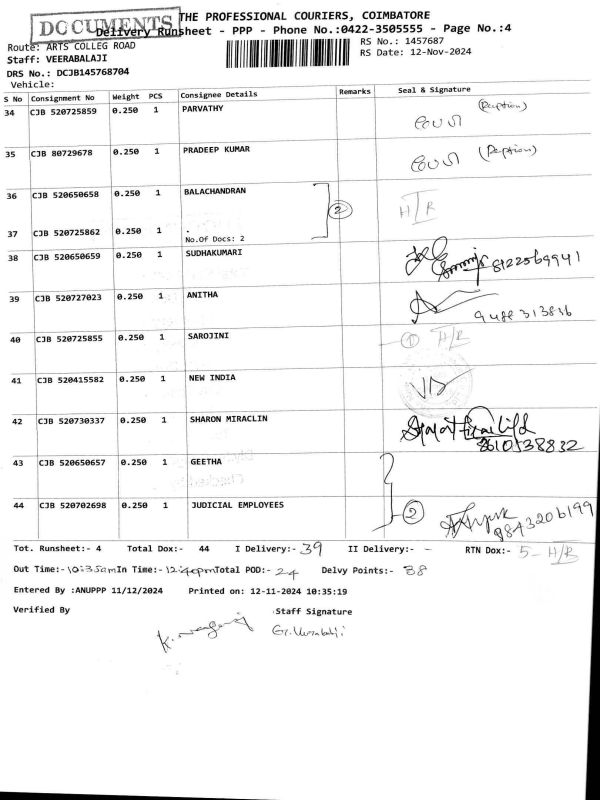 DOCUMENTS
THE PROFESSIONAL COURIERS, COIMBATORE
Delivery Runsheet - PPP - Phone No.:0422-3505555 - Page No.:4
Route: ARTS COLLEG ROAD
RS No.: 1457687
Staff: VEERABALAJI
RS Date: 12-Nov-2024
DRS No.: DCJB145768704
Vehicle:
S No Consignment No Weight PCS Consignee Details Remarks Seal & Signature
34 CJB 520725859 0.250 1 PARVATHY
35 CJB 80729678 0.250 1 PRADEEP KUMAR
36 CJB 520650658 0.250 1 BALACHANDRAN
2 H/R
37 CJB 520725862 0.250 1 .
No.Of Docs: 2
38 CJB 520650659 0.250 1 SUDHAKUMARI
8122569941
39 CJB 520727023 0.250 1 ANITHA
40 CJB 520725855 0.250 1 SAROJINI 1 H/R
41 CJB 520415582 0.250 1 NEW INDIA
42 CJB 520730337 0.250 1 SHARON MIRACLIN
8610538832
43 CJB 520650657 0.250 1 GEETHA
2
44 CJB 520702698 0.250 1 JUDICIAL EMPLOYEES
9843206199
Tot. Runsheet:- 4 Total Dox:- 44 I Delivery:- 39 II Delivery:- - RTN Dox:- 5 - H/R
Out Time:- 10:35am In Time:- 12:40pm Total POD:- 24 Delvy Points:- 38
Entered By :ANUPPP 11/12/2024 Printed on: 12-11-2024 10:35:19
Verified By Staff Signature